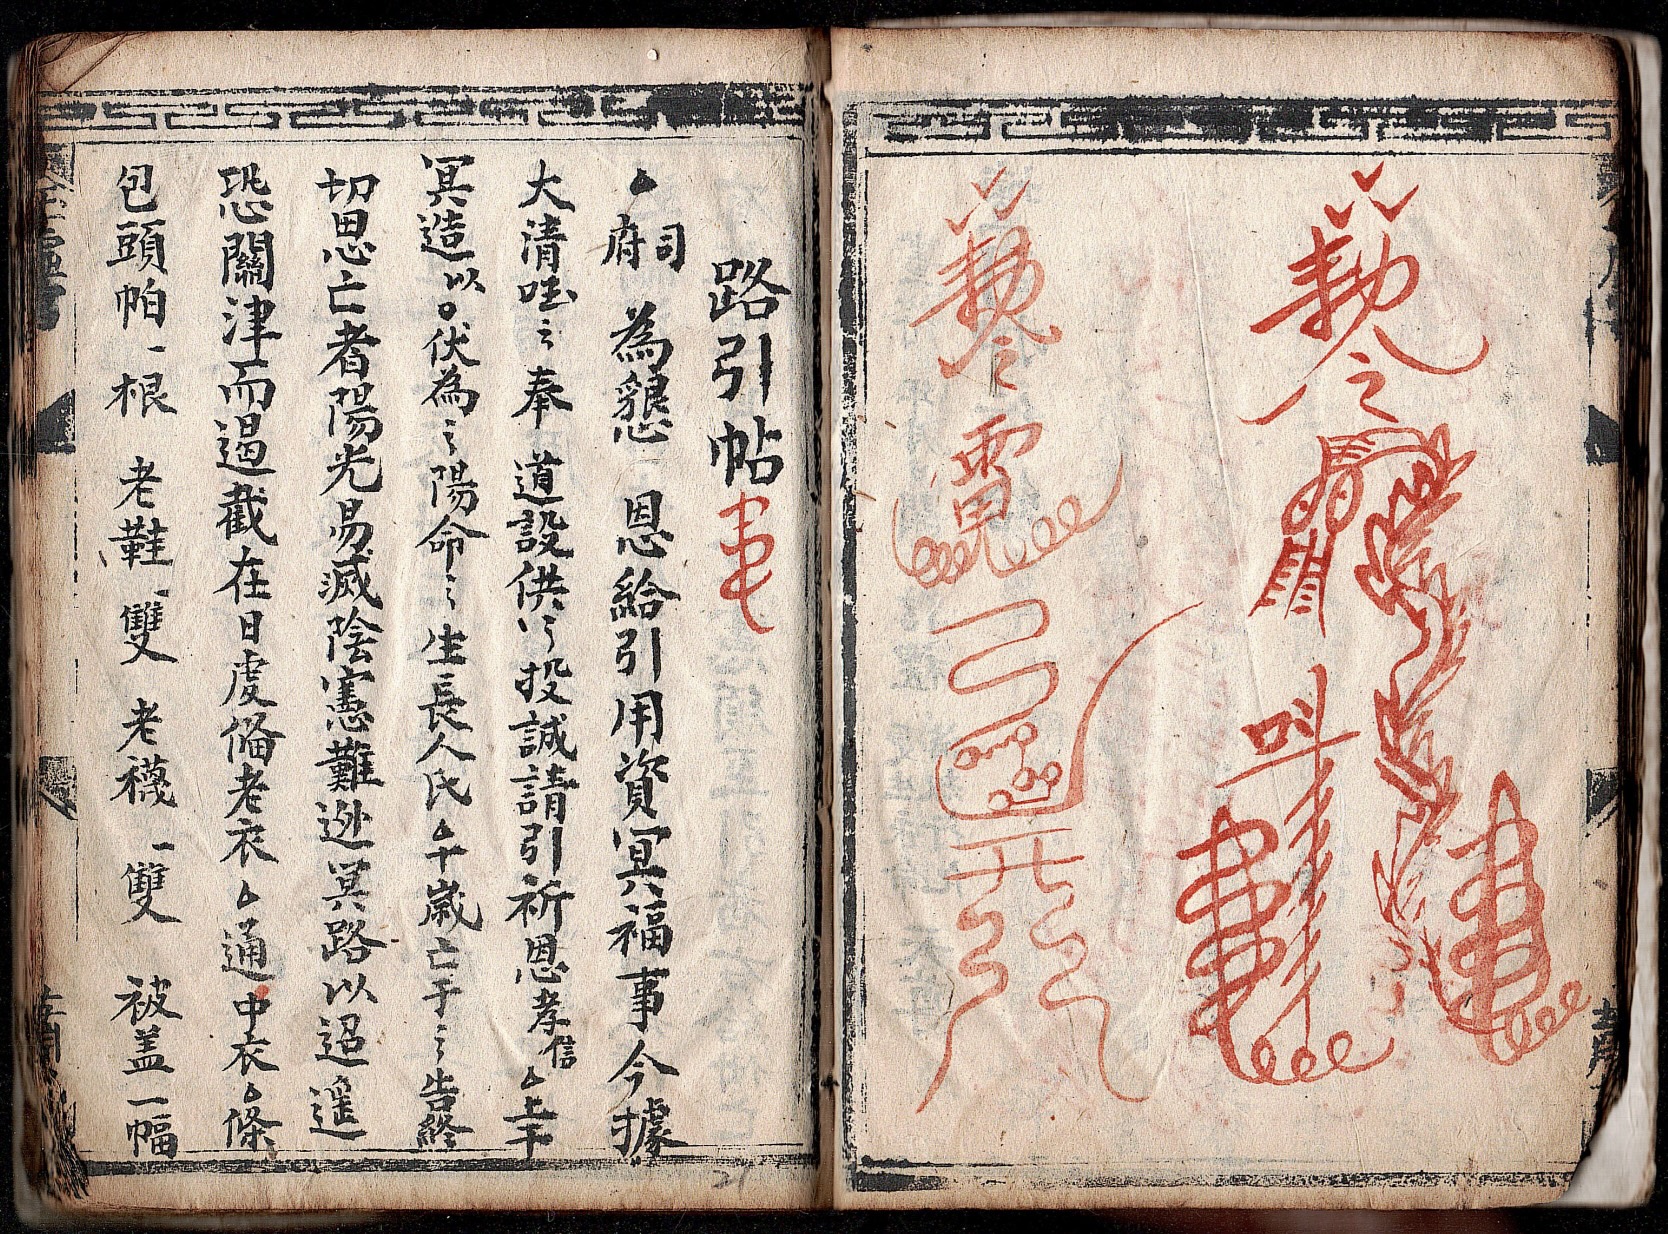 勅令
叫
勅令
路引帖
厶府司 為懇 恩給引用資冥福事今據
大清国〻奉 道設供〻投誠請引祈恩孝信厶上干
冥造以○伏為〻陽命〻生長人氏厶年歲亡于〻告終
切思亡者陽光易滅陰憲難逃冥路以迢遥
恐關津而遏截在日虔俻老衣厶通中衣厶條
包頭帕一根 老鞋一雙 老襪一雙 被盖一幅